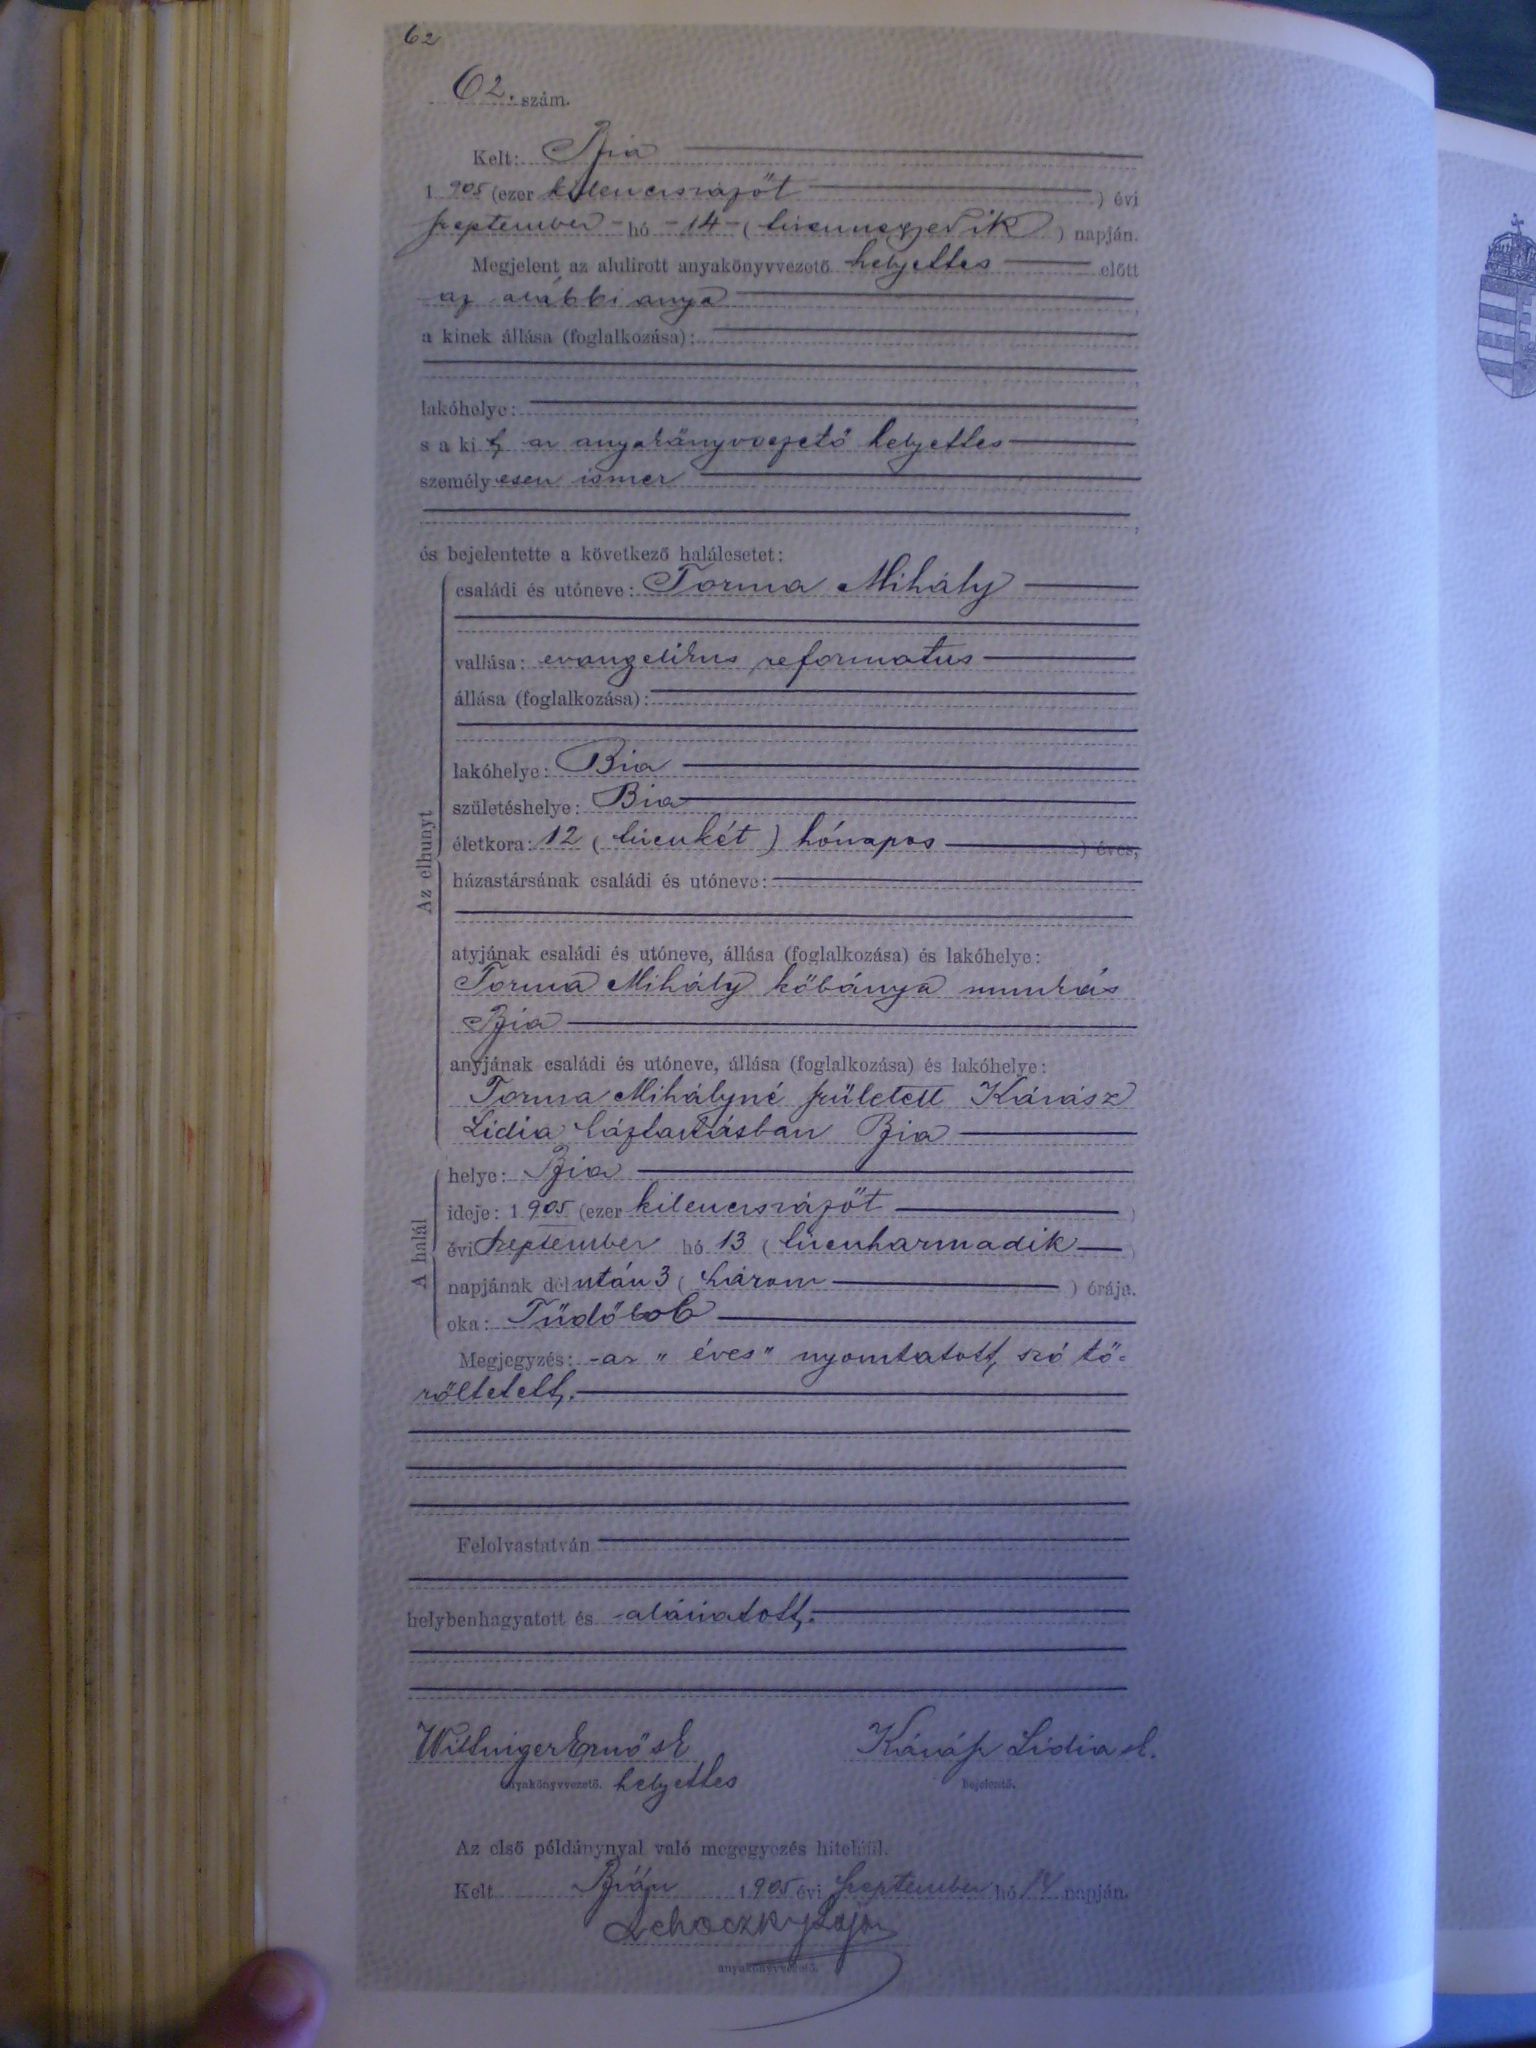 62
62. szám.
Kelt: Bia
1905 (ezer kilencszázöt ) évi
szeptember hó 14 ( tizennegyedik ) napján.
Megjelent az alulirott anyakönyvvezető helyettes előtt
az alábbi anya
a kinek állása (foglalkozása):
lakóhelye:
s a kit az anyakönyvvezető helyettes
személyesen ismer
és bejelentette a következő halálesetet:
Az elhunyt
családi és utóneve: Torma Mihály
vallása: evangelikus reformatus
állása (foglalkozása):
lakóhelye: Bia
születéshelye: Bia
életkora: 12 ( tizenkét ) hónapos ) éves,
házastársának családi és utóneve:
atyjának családi és utóneve, állása (foglalkozása) és lakóhelye:
Torma Mihály kőbánya munkás
Bia
anyjának családi és utóneve, állása (foglalkozása) és lakóhelye:
Torma Mihályné született Kárász
Lidia háztartásban Bia
A halál
helye: Bia
ideje: 1905 (ezer kilencszázöt )
évi szeptember hó 13 ( tizenharmadik )
napjának délután 3 ( három ) órája.
oka: Tüdőlob
Megjegyzés: - az "éves" nyomtatott szó tö-
röltetett.
Felolvastatván
helybenhagyatott és aláiratott.
Wittinger Ernő sk Kárász Lidia s.
anyakönyvvezető. helyettes bejelentő.
Az első példánynyal való megegyezés hiteléül.
Kelt Bián 1905 évi szeptember hó 14 napján.
Lehoczky Lajos
anyakönyvvezető.